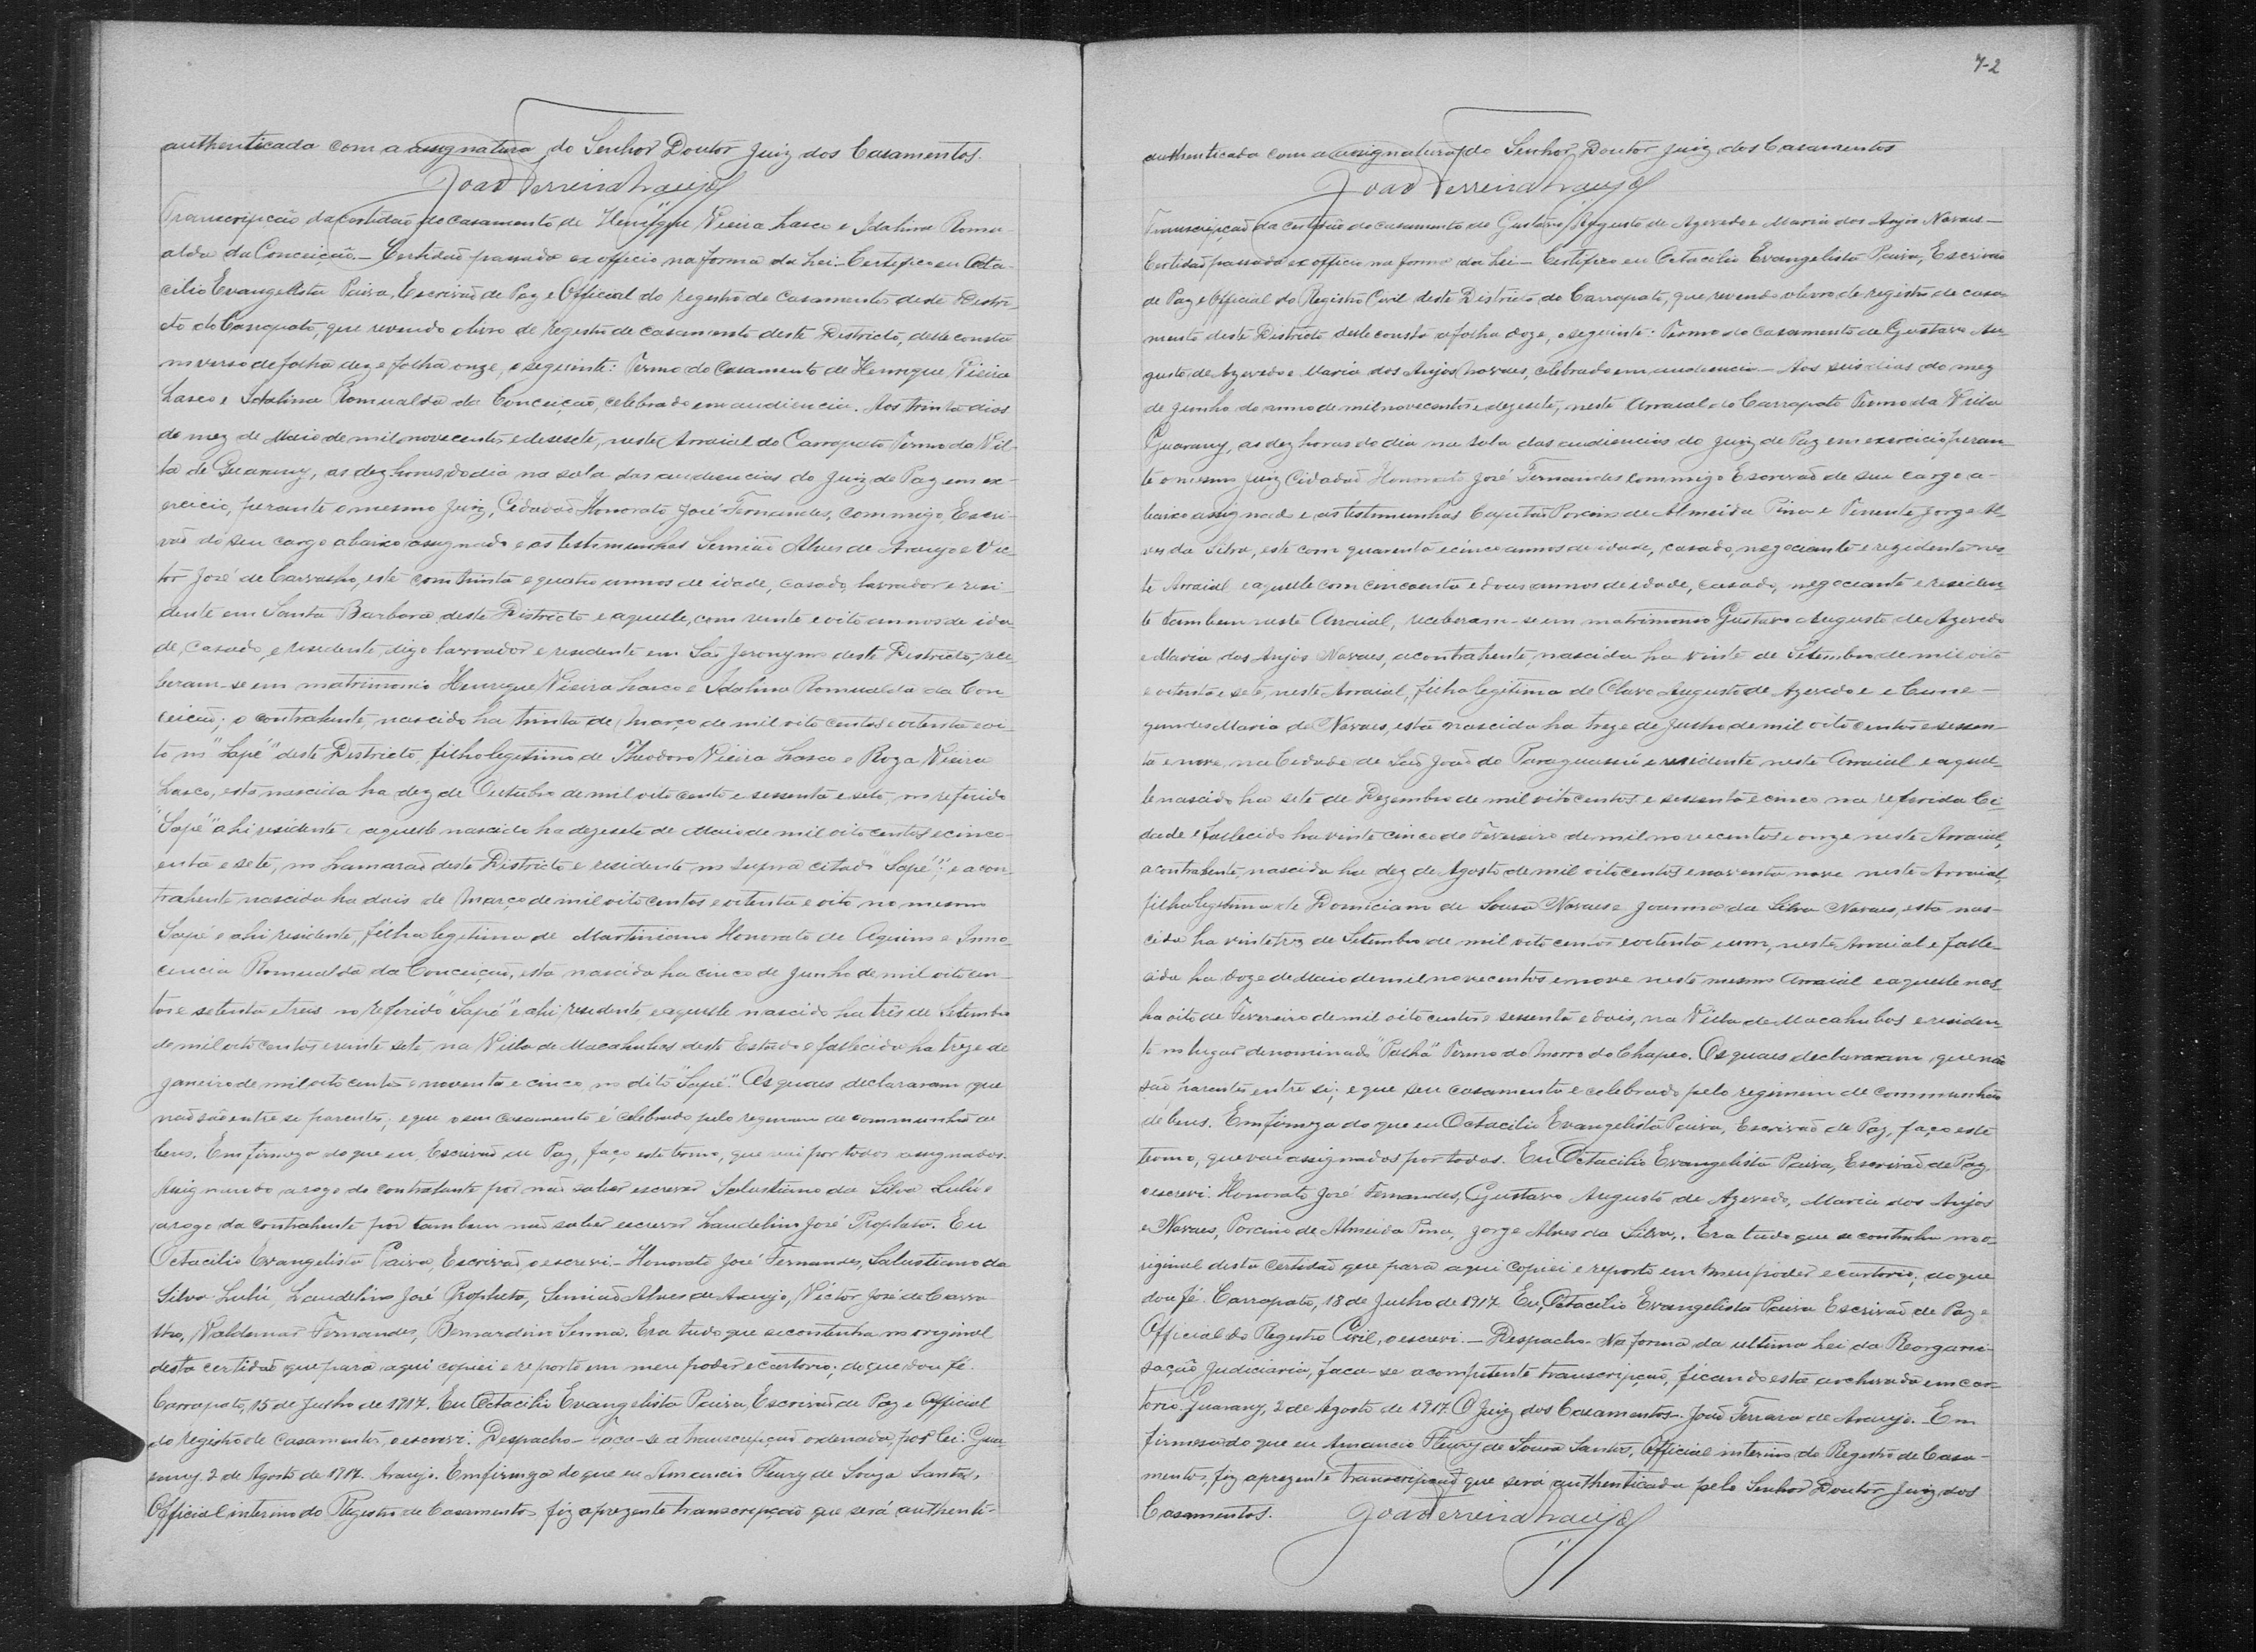 authenticada com a assignatura do Senhor Doutor Juiz dos Casamentos.
João Ferreira Araujo
Transcripcão da certidão do casamento de Henrique Vieira Lasco e Idalina Romu-
alda da Conceição. — Certidão passada ex officio na forma da Lei — Certifico eu Octa-
cilio Evangelista Paiva, Escrivão de Paz e Official do registro de casamentos deste Distri-
cto do Carrapato, que revendo o livro de registro de casamento deste Districto, delle consta
no verso de folha dez e folha onze, o seguinte: Termo do Casamento de Henrique Vieira
Lasco e Idalina Romualda da Conceição, celebrado em audiencia. Aos trinta dias
do mez de Maio de mil novecentos e desesete, neste Arraial do Carrapato Termo da Vil-
la de Guarany, as dez horas do dia na sala das audiencias do Juiz de Paz em ex-
ercicio, perante o mesmo Juiz, Cidadão Honorato José Fernandes, commigo, Escri-
vão do seu cargo abaixo assignado e as testimunhas Semião Alves de Araujo e Vic-
tor José de Carvalho, este com trinta e quatro annos de idade, casado, lavrador e resi-
dente em Santa Barbara deste Districto e aquelle, com vinte e oito annos de ida-
de, casado, e residente, digo lavrador e residente em São Jeronymo deste Districto, rece-
beram-se em matrimonio Henrique Vieira Lasco e Idalina Romualda da Con-
ceição; o contrahente, nascido ha trinta de Março de mil oito centos e oitenta e oi-
to no "Sapé" deste Districto, filho legitimo de Theodoro Vieira Lasco e Roza Vieira
Lasco, esta nascida ha dez de Outubro de mil oito cento e sessenta e sete, no referido
"Sapé" ahi residente e aquelle nascido ha dezesete de Maio de mil oito centos e cinco-
enta e sete, no Lamarão deste Districto e residente no supra citado "Sapé"; e a con-
trahente nascida ha dois de Março de mil oito centos e oitenta e oito no mesmo
Sapé e ahi residente, filha legitima de Martiniano Honorato de Aquino e Inno-
cencia Romualda da Conceição, esta nascida ha cinco de Junho de mil oito cen-
tos e setenta e tres no referido "Sapé" e ahi residente e aquelle nascido ha três de Setembro
de mil oito centos e vinte sete na Villa de Macahubas deste Estado e fallecido ha treze de
Janeiro de mil oito centos e noventa e cinco, no dito "Sapé". Os quaes declararam que
não são entre se parentes; e que o seu casamento é celebrado pelo regimem de communhão de
bens. Em firmeza do que eu, Escrivão de Paz, faço este termo, que vai por todos assignados.
Assignando a rogo do contrahente por não saber escrever Salustiano da Silva Lulú e
a rogo da contrahente por tambem não saber escrever Laudelino José Propheta. Eu
Octacilio Evangelista Paiva, Escrivão, o escrevi. — Honorato José Fernandes, Salustiano da
Silva Lulú, Laudelino José Propheta, Semião Alves de Araujo, Victor José de Carva-
lho, Valdemar Fernandes, Bernardino Senna. Era tudo que se continha no original
desta certidão que para aqui copiei e reporto em meu poder e cartorio; do que dou fé.
Carrapato, 15 de Julho de 1917. Eu Octacilio Evangelista Paiva, Escrivão de Paz e Official
do registro de casamentos, o escrevi. Despacho — Faça-se a transcripção ordenada, por lei. Gua-
rany, 2 de Agosto de 1917. Araujo. Em firmeza do que eu Amancio Fleury de Souza Santos,
Official interino do Registro de Casamentos fiz a prezente transcripção que será authenti-
7-2
authenticada com a assignatura do Senhor Doutor Juiz dos Casamentos
João Ferreira Araujo
Transcripção da certidão do casamento de Gustavo Augusto de Azevedo e Maria dos Anjos Novaes —
Certidão passada ex officio na forma da Lei — Certifico eu Octacilio Evangelista Paiva, Escrivão
de Paz e Official do Registro Civil deste Districto do Carrapato, que revendo o livro de registro de casa-
mento deste Districto delle consta a folha doze, o seguinte: Termo do casamento de Gustavo Au-
gusto de Azevedo e Maria dos Anjos Novaes, celebrado em audiencia — Aos seis dias do mez
de Junho do anno de mil novecentos e dezesete, neste Arraial do Carrapato Termo da Villa
Guarany, as dez horas do dia na sala das audiencias do Juiz de Paz em exercicio peran-
te o mesmo Juiz Cidadão Honorato José Fernandes commigo Escrivão de seu cargo a-
baixo assignado e as testimunhas Capitão Porcino de Almeida Pina e Tenente Jorge Al-
ves da Silva, este com quarenta e cinco annos de idade, casado, negociante e rezidente nes-
te Arraial e aquelle com cincoenta e dous annos de idade, casado, negociante e residen-
te tambem neste Arraial, receberam-se em matrimonio Gustavo Augusto de Azevedo
e Maria dos Anjos Novaes, o contrahente, nascido ha vinte de Setembro de mil oito
e oitenta e sete, neste Arraial, filho legitimo de Clavo Augusto de Azevedo e e Cune-
gundes Maria de Novaes, esta nascida ha treze de Julho de mil oito centos e sessen-
ta e nove, na Cidade de São João do Paraguassú e residente neste Arraial e aquel-
le nascido ha sete de Dezembro de mil oito centos e sessenta e cinco na referida Ci-
dade e fallecido ha vinte cinco de Fevereiro de mil novecentos e onze neste Arraial,
a contrahente, nascida ha dez de Agosto de mil oito centos e noventa nove neste Arraial,
filha legitima de Domiciano de Sousa Novaes e Joanna da Silva Novaes, esta nas-
cida ha vinte tres de Setembro de mil oito centos e oitenta e um, neste Arraial e falle-
cida ha doze de Maio de mil novecentos e nove neste mesmo Arraial e aquelle nas-
ha oito de Fevereiro de mil oito centos e sessenta e dois, na Villa de Macahubas e residen-
te no lugar denominado Termo do Morro do Chapeo. Os quaes declararam que não
são parentes entre si; e que seu casamento e celebrado pelo regimem de communhão
de bens. Em firmeza do que eu Octacilio Evangelista Paiva, Escrivão de Paz, faço este
termo, que vai assignados por todos. Eu Octacilio Evangelista Paiva, Escrivão de Paz,
o escrevi. Honorato José Fernandes, Gustavo Augusto de Azevedo, Maria dos Anjos
e Novaes, Porcino de Almeida Pina, Jorge Alves da Silva,. Era tudo que se continha no o-
riginal desta certidão que para aqui copiei e reporto em meu poder e cartorio; do que
dou fé. Carrapato, 18 de Julho de 1917. Eu, Octacilio Evangelista Paiva Escrivão de Paz e
Official do Registro Civil, o escrevi. — Despacho — Na forma da ultima Lei da Reorgani-
sação Judiciaria, faca-se a competente transcripção, ficando esta archivada em car-
torio. Guarany, 2 de Agosto de 1917. O Juiz dos Casamentos. João Ferrera de Araujo. Em
firmesa do que eu Amancio Fleury de Sousa Santos, Official interino do Registro de Casa-
mentos, fiz a prezente transcripção que será authenticada pelo Senhor Doutor Juiz dos
Casamentos. João Ferreira Araujo